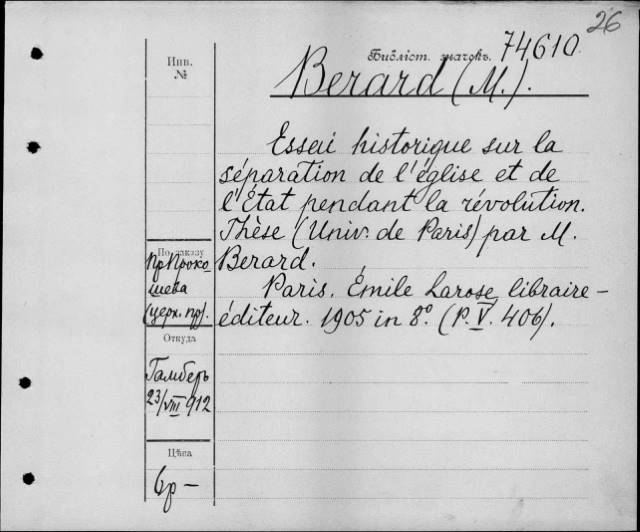 26
Библіот. значокъ. 74610.
Инв.
№
Berard (M.).
Essai historique sur la
séparation de l'église et de
l'État pendant la révolution.
Thèse (Univ. de Paris) par M.
Berard.
Paris. Émile Larose, libraire-
éditeur. 1905 in 8º. (P. V. 406).
По заказу
Пр Проко
шева
(церк. пр).
Откуда
Гамберъ
23/VIII 912
Цѣна
6р —